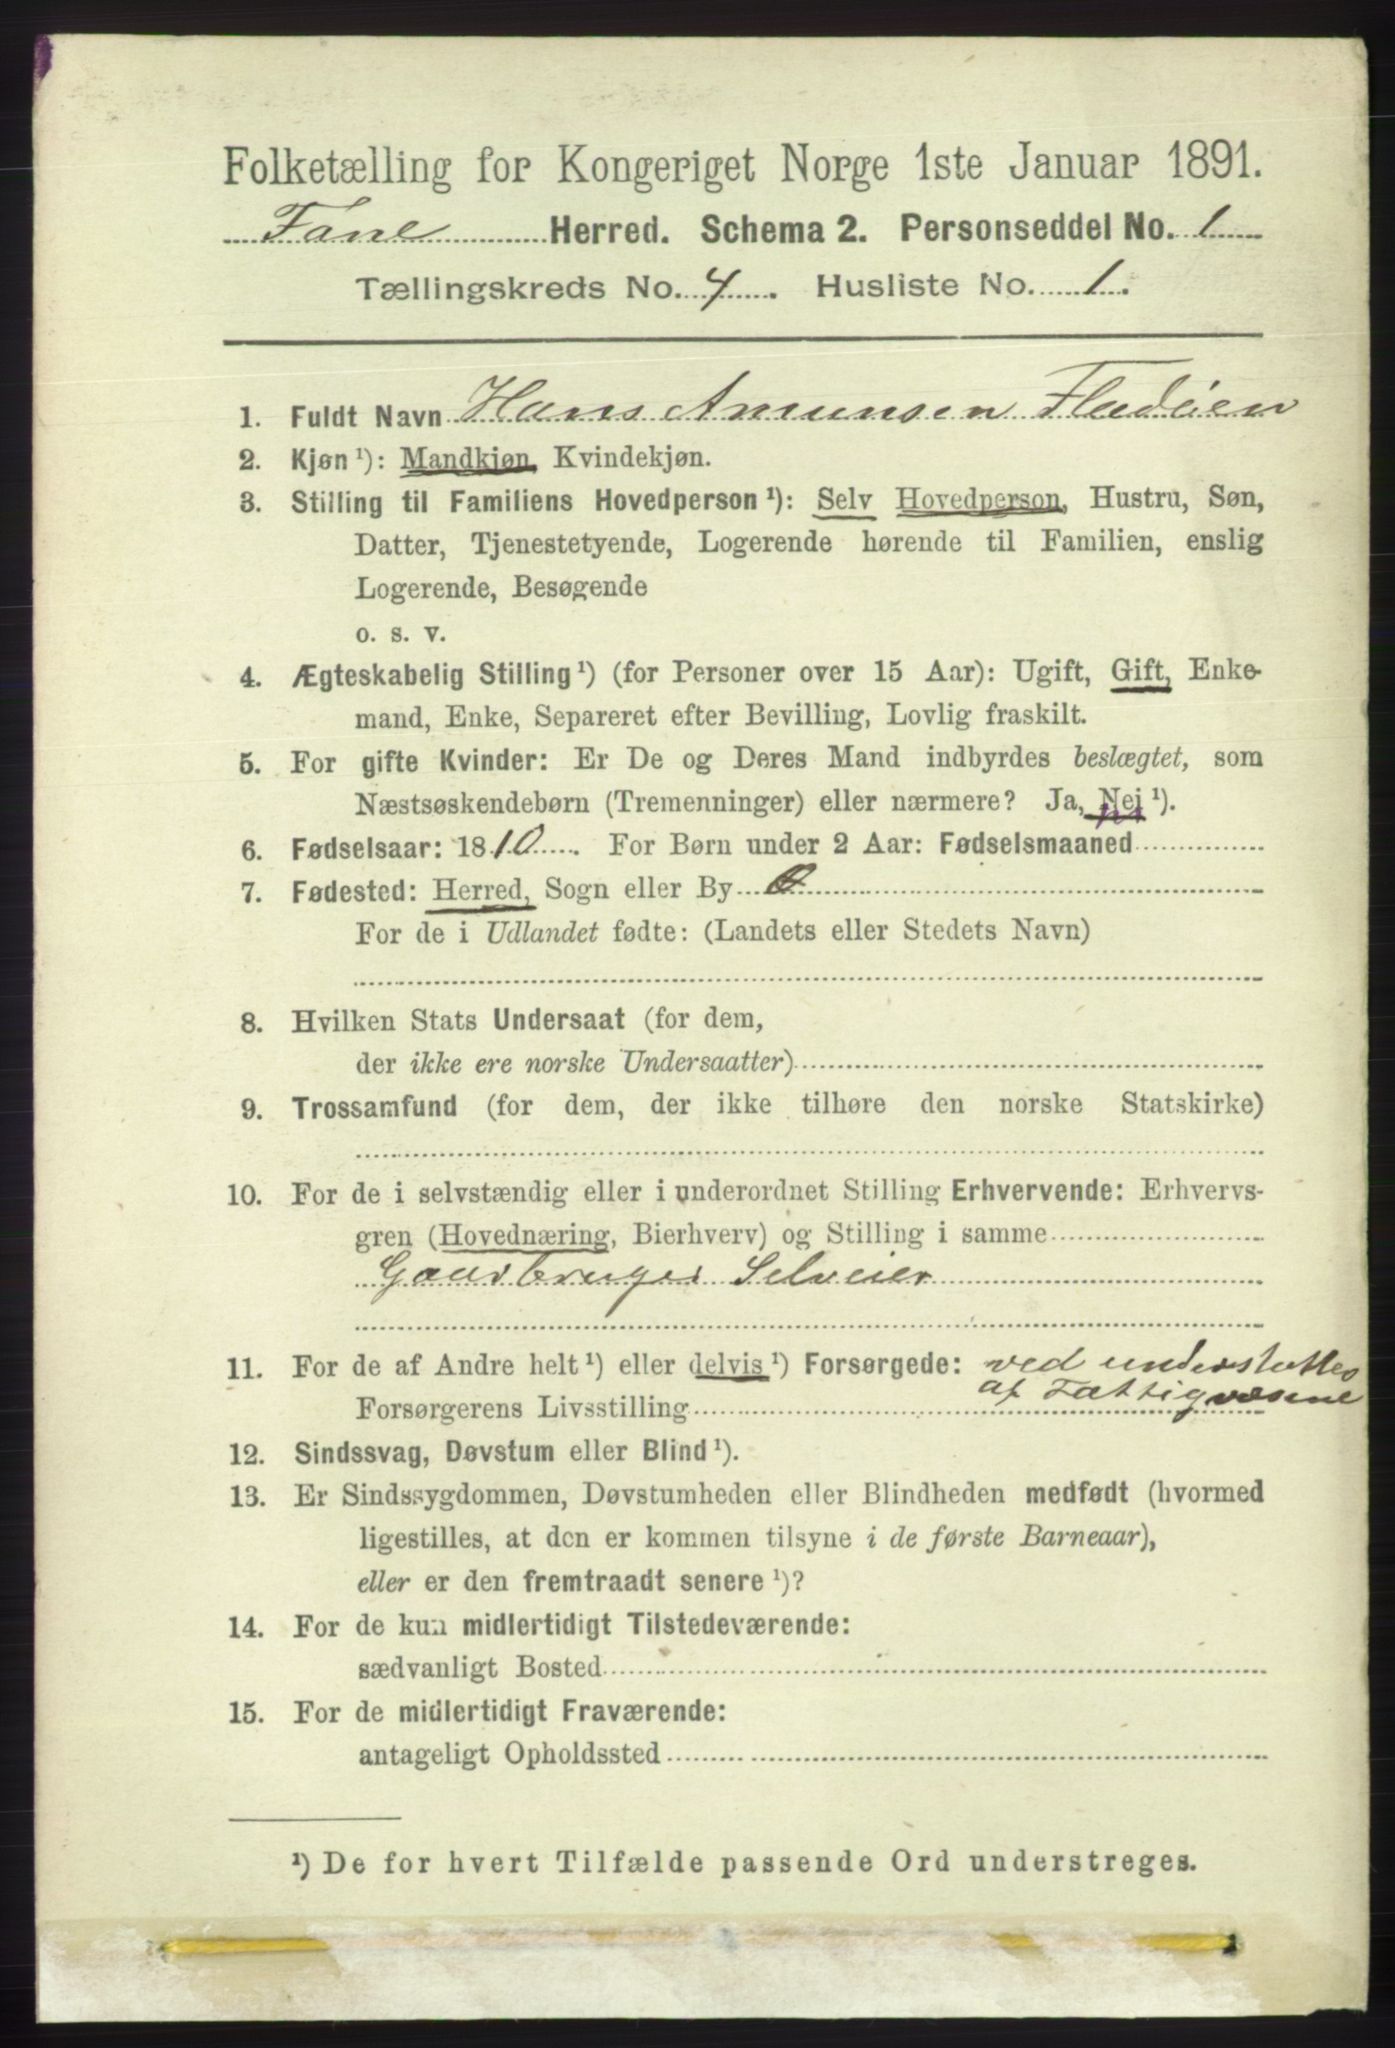 Folketælling for Kongeriget Norge 1ste Januar 1891.
Fane Herred. Schema 2. Personseddel No. 1
Tællingskreds No. 4. Husliste No. 1.
1. Fuldt Navn Hans Amunsen Fladøien
2. Kjøn ¹): Mandkjøn, Kvindekjøn.
3. Stilling til Familiens Hovedperson ¹): Selv Hovedperson, Hustru, Søn,
Datter, Tjenestetyende, Logerende hørende til Familien, enslig
Logerende, Besøgende
o. s. v.
4. Ægteskabelig Stilling ¹) (for Personer over 15 Aar): Ugift, Gift, Enke-
mand, Enke, Separeret efter Bevilling, Lovlig fraskilt.
5. For gifte Kvinder: Er De og Deres Mand indbyrdes beslægtet, som
Næstsøskendebørn (Tremenninger) eller nærmere? Ja, Nei ¹).
6. Fødselsaar: 1810. For Børn under 2 Aar: Fødselsmaaned
7. Fødested: Herred, Sogn eller By
For de i Udlandet fødte: (Landets eller Stedets Navn)
8. Hvilken Stats Undersaat (for dem,
der ikke ere norske Undersaatter)
9. Trossamfund (for dem, der ikke tilhøre den norske Statskirke)
10. For de i selvstændig eller i underordnet Stilling Erhvervende: Erhvervs-
gren (Hovednæring, Bierhverv) og Stilling i samme
Gaardbruger Selveier
11. For de af Andre helt ¹) eller delvis ¹) Forsørgede: ved understøttes
Forsørgerens Livsstilling af Fattigvæsene
12. Sindssvag, Døvstum eller Blind ¹).
13. Er Sindssygdommen, Døvstumheden eller Blindheden medfødt (hvormed
ligestilles, at den er kommen tilsyne i de første Barneaar),
eller er den fremtraadt senere ¹)?
14. For de kun midlertidigt Tilstedeværende:
sædvanligt Bosted
15. For de midlertidigt Fraværende:
antageligt Opholdssted
¹) De for hvert Tilfælde passende Ord understreges.